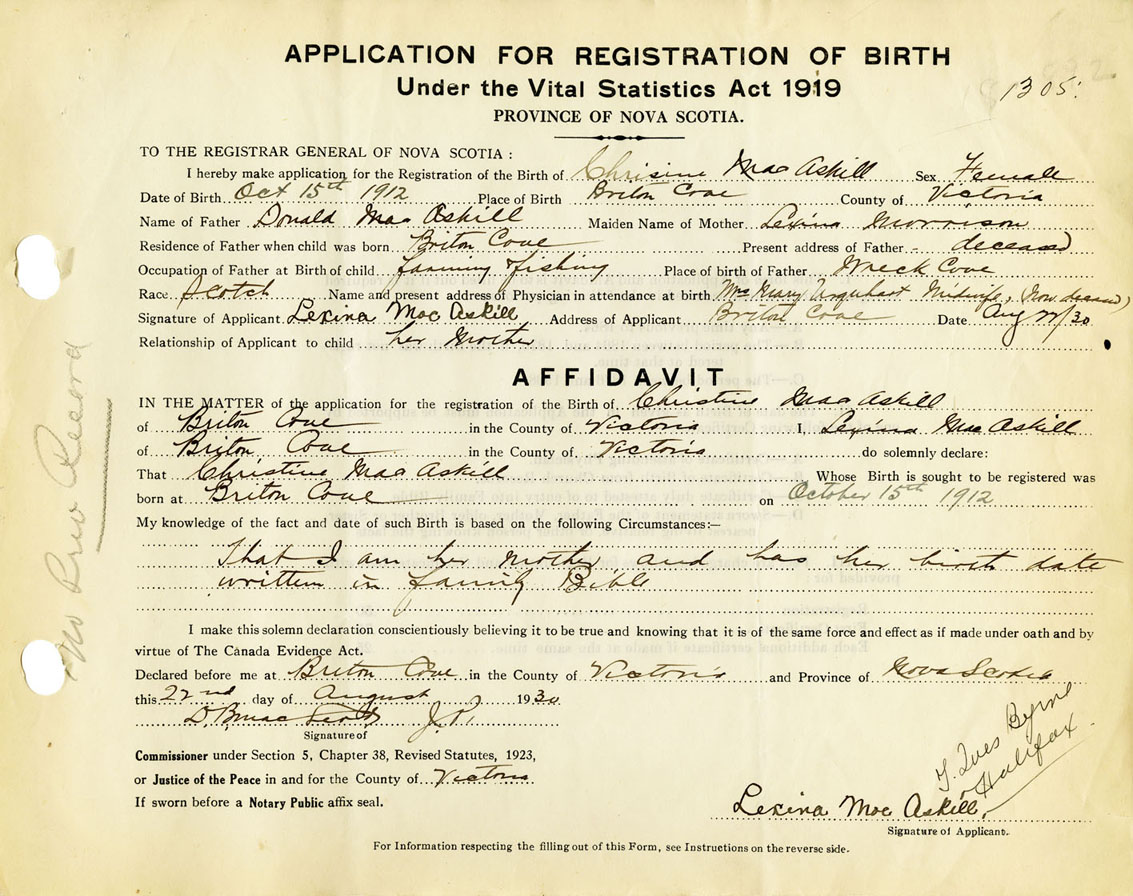 APPLICATION FOR REGISTRATION OF BIRTH
Under the Vital Statistics Act 1919
1305.
PROVINCE OF NOVA SCOTIA.
TO THE REGISTRAR GENERAL OF NOVA SCOTIA :
I hereby make application for the Registration of the Birth of Chrisine Mac Askill Sex Female
Date of Birth Oct 15th 1912 Place of Birth Briton Cove County of Victoria
Name of Father Donald Mac Askill Maiden Name of Mother Lexina Morrison
Residence of Father when child was born Briton Cove Present address of Father - deceased
Occupation of Father at Birth of child farming fishing Place of birth of Father Wreck Cove
Race Scotch Name and present address of Physician in attendance at birth Mrs Mary Urquhart Midwife, (Now deceased)
Signature of Applicant Lexina Mac Askill Address of Applicant Briton Cove Date Aug 22/30
Relationship of Applicant to child her Mother
AFFIDAVIT
IN THE MATTER of the application for the registration of the Birth of Christine Mac Askill
of Briton Cove in the County of Victoria I, Lexina Mac Askill
of Briton Cove in the County of Victoria do solemnly declare:
That Christine Mac Askill Whose Birth is sought to be registered was
born at Briton Cove on October 15th 1912
My knowledge of the fact and date of such Birth is based on the following Circumstances:—
That I am her mother, and has her birth date
written in family Bible
I make this solemn declaration conscientiously believing it to be true and knowing that it is of the same force and effect as if made under oath and by
virtue of The Canada Evidence Act.
Declared before me at Briton Cove in the County of Victoria and Province of Nova Scotia
this 22nd day of August 1930
D. B. J.P.
Signature of
Commissioner under Section 5, Chapter 38, Revised Statutes, 1923,
or Justice of the Peace in and for the County of Victoria
If sworn before a Notary Public affix seal.
Lexina Mac Askill
Signature of Applicant.
For Information respecting the filling out of this Form, see Instructions on the reverse side.
No Prev Record
Ives Byrne
Halifax